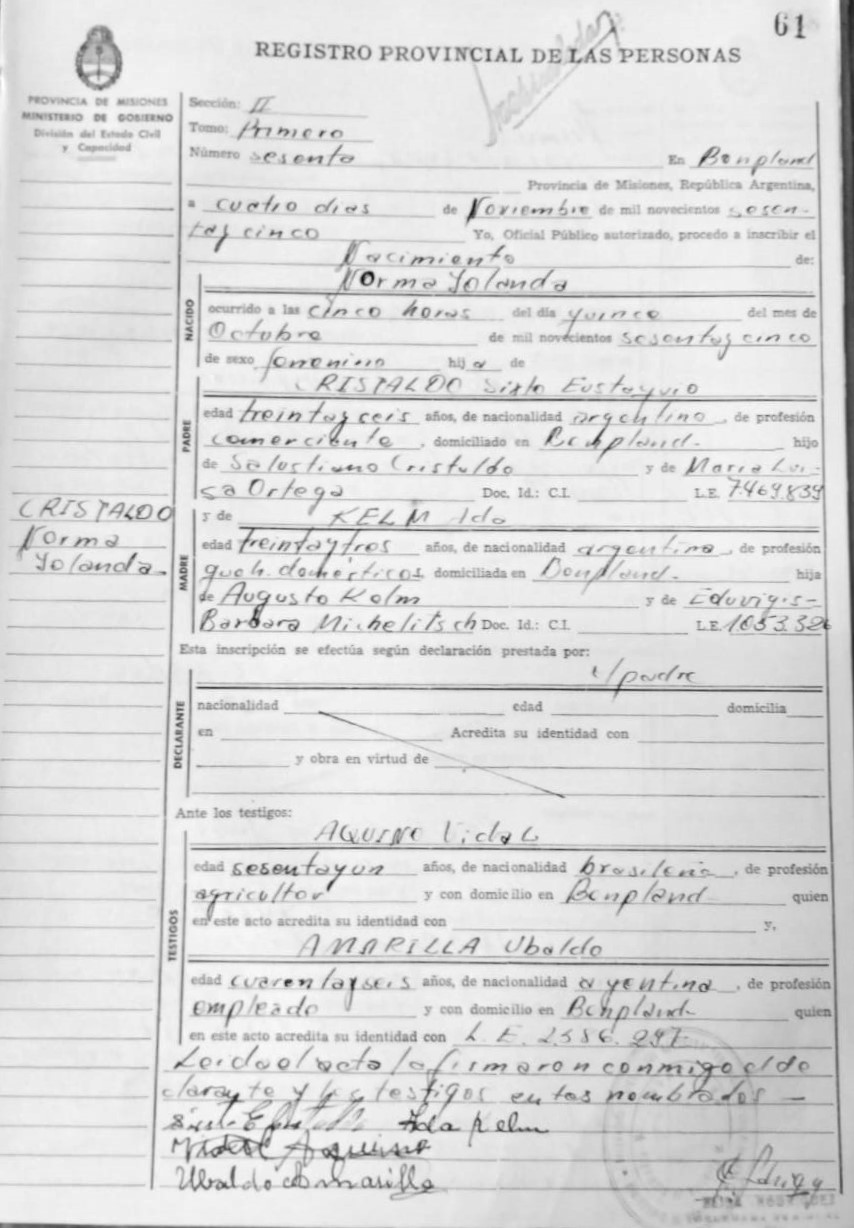 61
REGISTRO PROVINCIAL DE LAS PERSONAS
PROVINCIA DE MISIONES
MINISTERIO DE GOBIERNO
División del Estado Civil
y Capacidad
Sección: II
Tomo: Primero
Número sesenta En Bonpland
Provincia de Misiones, República Argentina,
a cuatro dias de Noviembre de mil novecientos sesen-
tay cinco Yo, Oficial Público autorizado, procedo a inscribir el
Nacimiento de:
NACIDO
Norma Yolanda
ocurrido a las cinco horas del día quince del mes de
Octubre de mil novecientos sesentay cinco
de sexo femenino hija de
PADRE
CRISTALDO Sixto Eustaquio
edad treintayseis años, de nacionalidad argentino, de profesión
comerciante, domiciliado en Bonpland- hijo
de Salustiano Cristaldo y de Maria Lui-
sa Ortega Doc. Id.: C.I. L.E. 7.469.839
CRISTALDO
Norma
Yolanda
MADRE
y de KELM Ida
edad treintaytres años, de nacionalidad argentina, de profesión
queh. domésticos, domiciliada en Bonpland- hija
de Augusto Kelm y de Eduvigis-
Barbara Michelitsch Doc. Id.: C.I. L.E. 1.053.326
Esta inscripción se efectúa según declaración prestada por:
el padre
DECLARANTE
nacionalidad edad domicilia
en Acredita su identidad con
y obra en virtud de
Ante los testigos:
TESTIGOS
AQUINO Vidal
edad sesentayun años, de nacionalidad brasileña, de profesión
agricultor y con domicilio en Bonpland- quien
en este acto acredita su identidad con y,
AMARILLA Ubaldo
edad cuarentayseis años, de nacionalidad argentina, de profesión
empleado y con domicilio en Bonpland- quien
en este acto acredita su identidad con L.E. 2.586.297
Leida el acta la firmaron conmigo el de
clarante y los testigos en tas nombrados —
Ida Kelm
Vidal Aquino
Ubaldo Amarilla